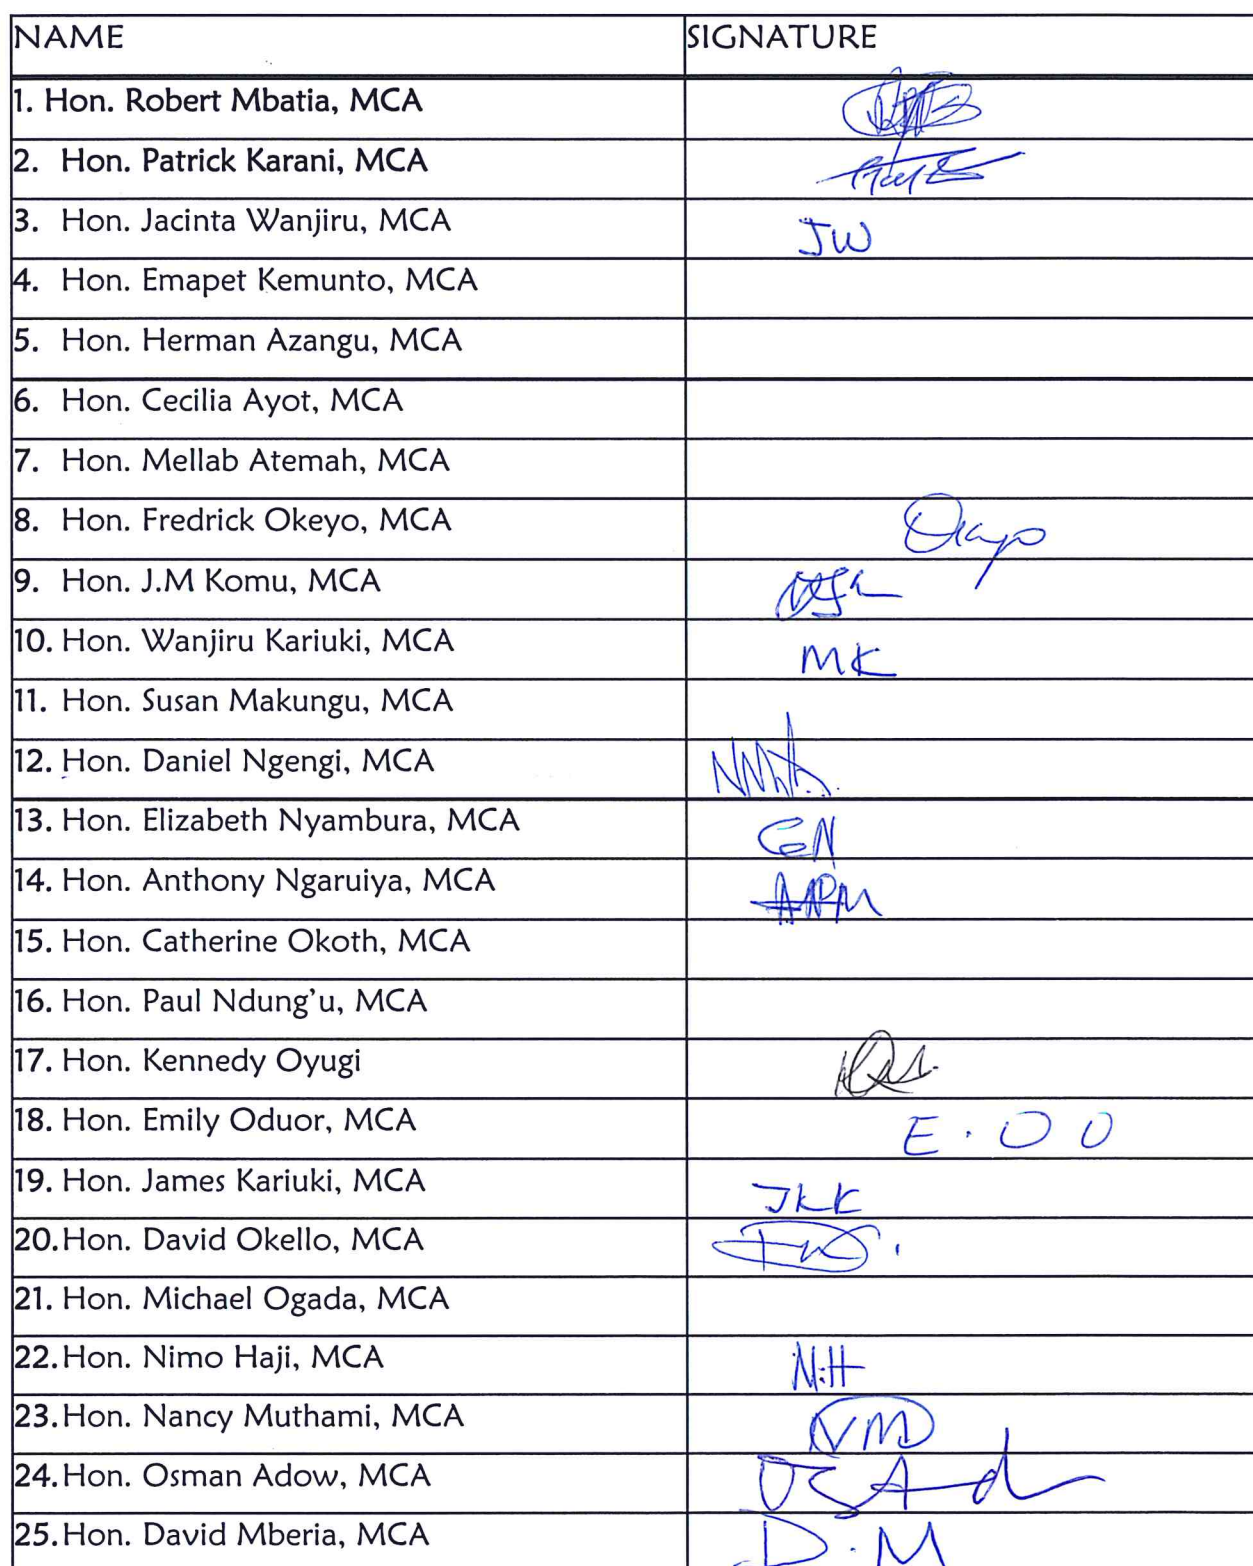 NAME SIGNATURE
1. Hon. Robert Mbatia, MCA
2. Hon. Patrick Karani, MCA
3. Hon. Jacinta Wanjiru, MCA JW
4. Hon. Emapet Kemunto, MCA
5. Hon. Herman Azangu, MCA
6. Hon. Cecilia Ayot, MCA
7. Hon. Mellab Atemah, MCA
8. Hon. Fredrick Okeyo, MCA Okeyo
9. Hon. J.M Komu, MCA
10. Hon. Wanjiru Kariuki, MCA MK
11. Hon. Susan Makungu, MCA
12. Hon. Daniel Ngengi, MCA
13. Hon. Elizabeth Nyambura, MCA EN
14. Hon. Anthony Ngaruiya, MCA
15. Hon. Catherine Okoth, MCA
16. Hon. Paul Ndung’u, MCA
17. Hon. Kennedy Oyugi
18. Hon. Emily Oduor, MCA E.OO
19. Hon. James Kariuki, MCA JKK
20. Hon. David Okello, MCA
21. Hon. Michael Ogada, MCA
22. Hon. Nimo Haji, MCA N.H
23. Hon. Nancy Muthami, MCA NM
24. Hon. Osman Adow, MCA
25. Hon. David Mberia, MCA D.M